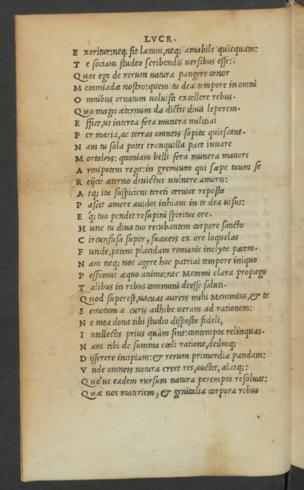 LVCR.
E xoritur; neq; fit lætum, neq; amabile quicquam:
T e sociam studeo scribendis uersibus esse:
Q uos ego de rerum natura pangere conor
M emmiadæ nostro: quem tu dea tempore in omni
O mnibus ornatum uoluisti excellere rebus.
Q uo magis æternum da dictis diua leporem.
E ffice, ut interea fera munera militiai
P er maria, ac terras omneis sopita quiescant.
N am tu sola potes tranquilla pace iuuare
M ortaleis: quoniam belli fera munera mauors
A rmipotens regit: in gremium qui sæpe tuum se
R eijcit æterno deuictus uulnere amoris:
A tq; ita suspiciens tereti ceruice reposta
P ascit amore auidos inhians in te dea uisus;
E q; tuo pendet resupini spiritus ore.
H unc tu diua tuo recubantem corpore sancto
C ircunfusa super, suaueis ex ore loquelas
F unde, petens placidam romanis inclyta pacem.
N am neq; nos agere hoc patriai tempore iniquo
P ossumus æquo animo: nec Memmi clara propago
T alibus in rebus communi deesse saluti.
Q uod superest, uacuas aureis mihi Memmius, & te
S emotum a curis adhibe ueram ad rationem:
N e mea dona tibi studio disposta fideli,
I ntellecta prius quàm sint: contempta relinquas.
N am tibi de summa cœli ratione, deûmq;
D isserere incipiam: & rerum primordia pandam:
V nde omneis natura creet res, auctet, alatq;:
Q uo'ue eadem rursum natura perempta resoluat:
Q uæ nos materiem, & genitalia corpora rebus